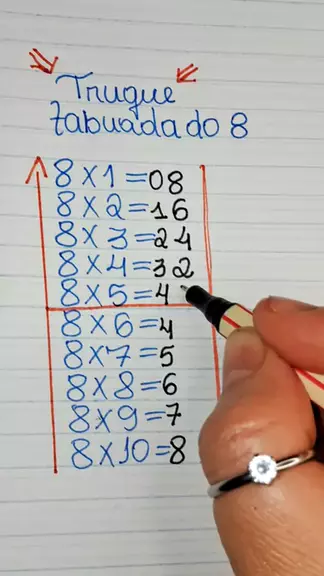 Truque
tabuada do 8
8 x 1 = 08
8 x 2 = 16
8 x 3 = 24
8 x 4 = 32
8 x 5 = 4
8 x 6 = 4
8 x 7 = 5
8 x 8 = 6
8 x 9 = 7
8 x 10 = 8